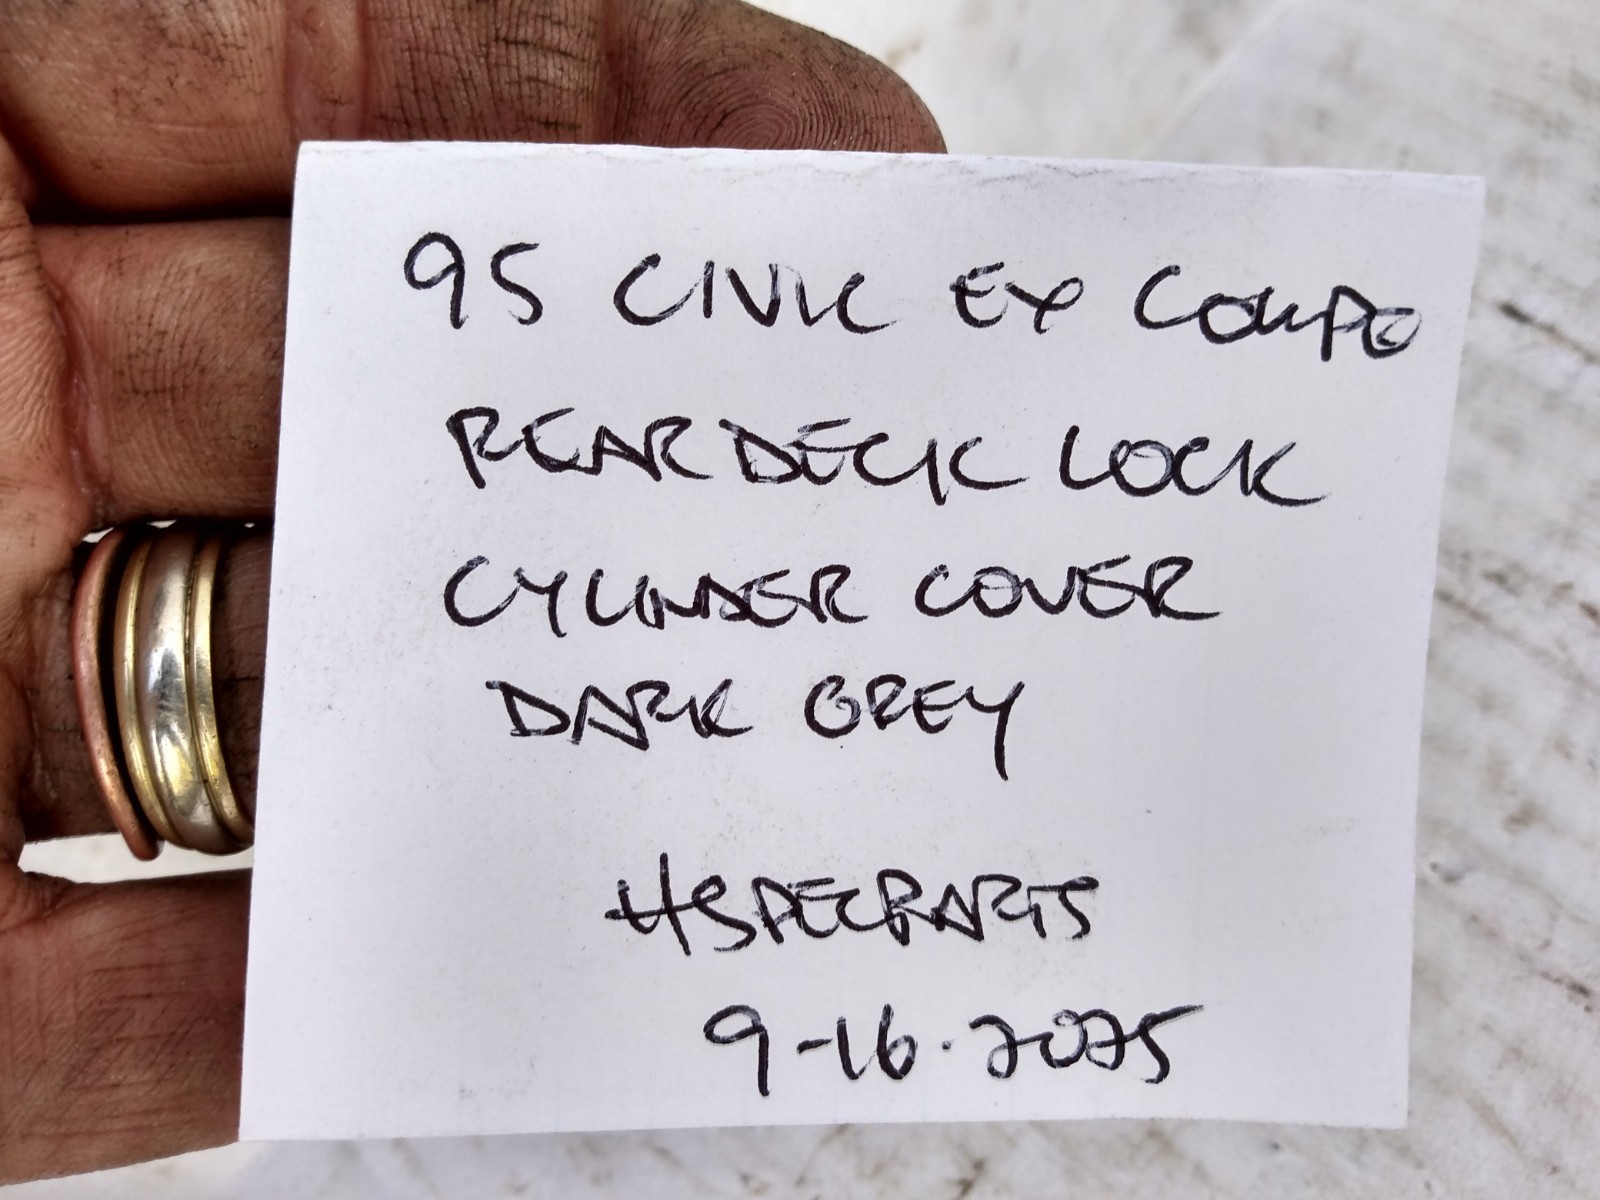 95 CIVIC EX COUPE
REAR DECK LOCK
CYLINDER COVER
DARK GREY
HSPECPARTS
9-16.2025